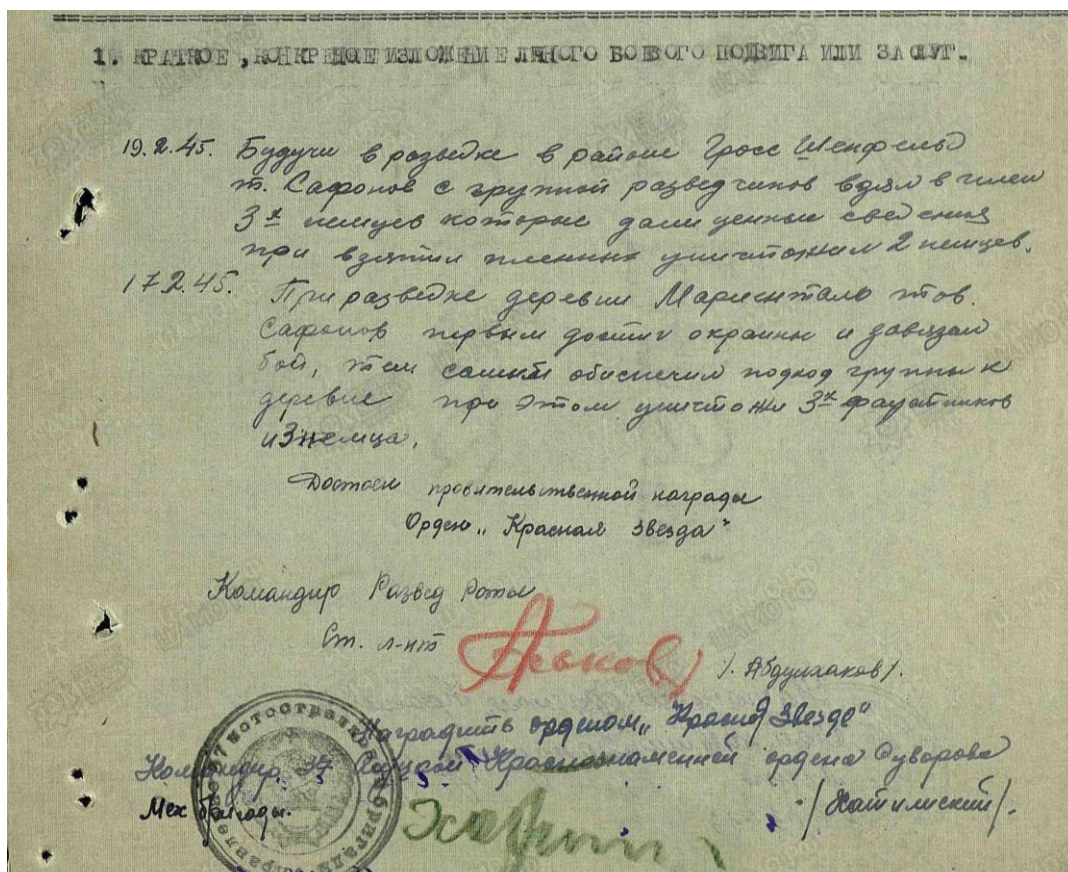 1. КРАТКОЕ, КОНКРЕНОЕ ИЗЛОЖЕНИЕ ЛИЧНОГО БОЕВОГО ПОДВИГА ИЛИ ЗАСЛУГ.
19.2.45. Будучи в разведке в районе Гросс Шенфельд
т. Сафонов с группой разведчиков взял в плен
3х немцев которые дали ценные сведения
при взятии пленных уничтожил 2 немцев.
17.2.45. При разведке деревни Мариенталь тов.
Сафонов первым достиг окраины и завязал
бой, тем самым обеспечил подход группы к
деревне при этом уничтожил 3х фаустников
и 3 немца.
Достоин правительственной награды
Орден „Красная Звезда"
Командир Развед Роты
Ст. л-нт
/. Абдулхаков/.
Наградить орденом „Красной Звезде"
Командир 37 Краснознаменной ордена Суворова
Мех бригады.